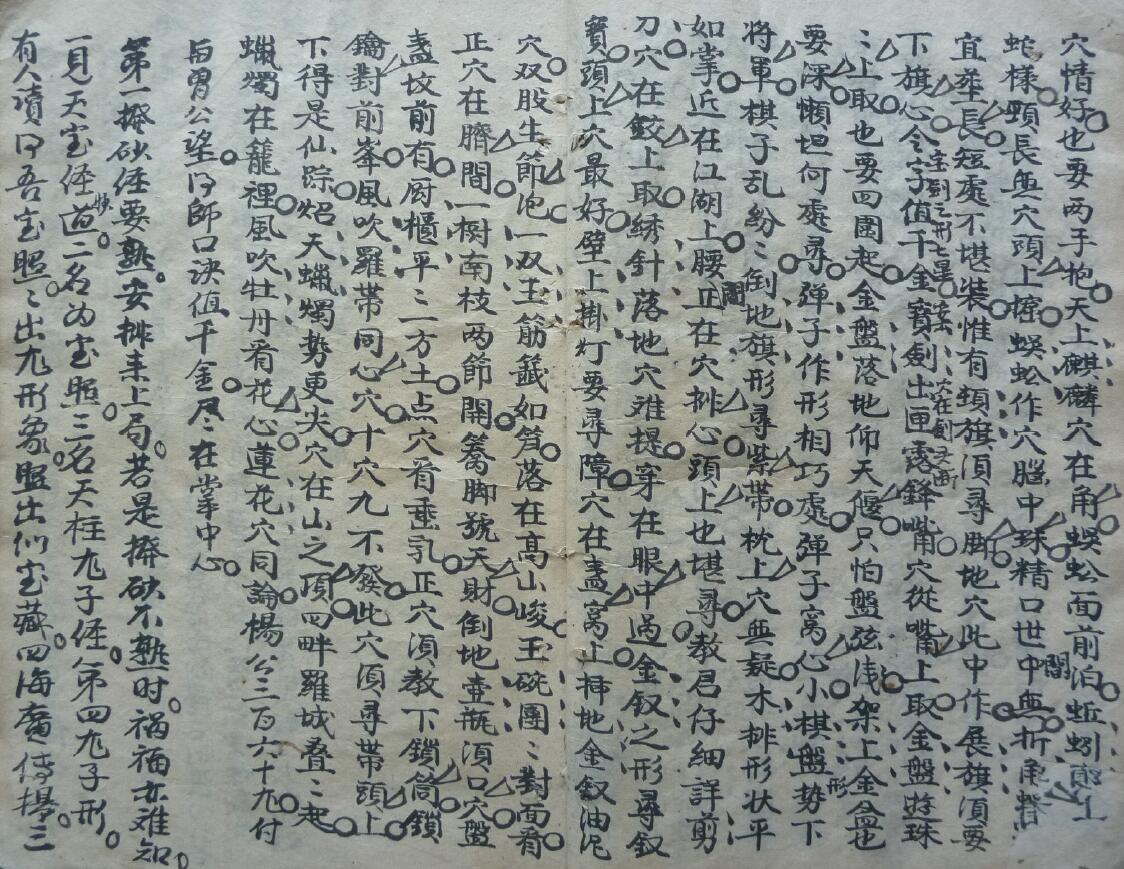 穴情好也要两手抱天上麒麟穴在角蜈蚣面前泊蚯蚓上
蛇樣頸長無穴頭上擔蜈蚣作穴腦中珠精口世中無折角
宜葬長短處不堪裝惟有頓旗湏尋脚地穴此中作展旗湏要
下旗心令字值千金寶劍出匣露鋒嘴穴從嘴上取金盤遊珠
寶劍之形七星
穴在劍
ミ上取也要四圍起金盤落地仰天偃只怕盤弦浅架上金盆也
要深懶坦何處尋弹子作形相巧處弹子窩心小棋盤勢下
形
将軍棋子乱紛ミ倒地旗形尋紫带枕上穴無疑木排形状平
如掌近在江湖上腰正在穴排心頭上也堪尋教君仔細詳剪
刀穴在鉸上取绣針落地穴难提穿在眼中過金釵之形尋釵
寶頭上穴最好壁上掛灯要尋障穴在盞窩上插地金釵油泥
穴双股生節泡一双玉筋籤如笋落在高山峻玉碗團ミ對面看
正穴在臍間一樹南枝两節開蓦脚號天財倒地壺瓶湏口穴盤
盞坟前有厨櫃平ミ方土点穴看垂乳正穴湏教下鎖筒鎖
鑰對前峯風吹羅带同心穴十穴九不發此穴湏尋带頭上
下得是仙踪炤天蠟燭勢更尖穴在山之頂四畔羅城叠ミ起
蠟燭在籠裡風吹牡丹看花心蓮花穴同論楊公三百六十九付
與曾公望師口决值千金尽在掌中心
第一撥砂徑要熟安排来上局若是撥砂不熟时祸福亦难知
一見天宝徑道二名为宝照三名天柱九子徑第四九子形
快
有人讀吾宝照ミ出九形象照出似宝藏四海廣传揚三